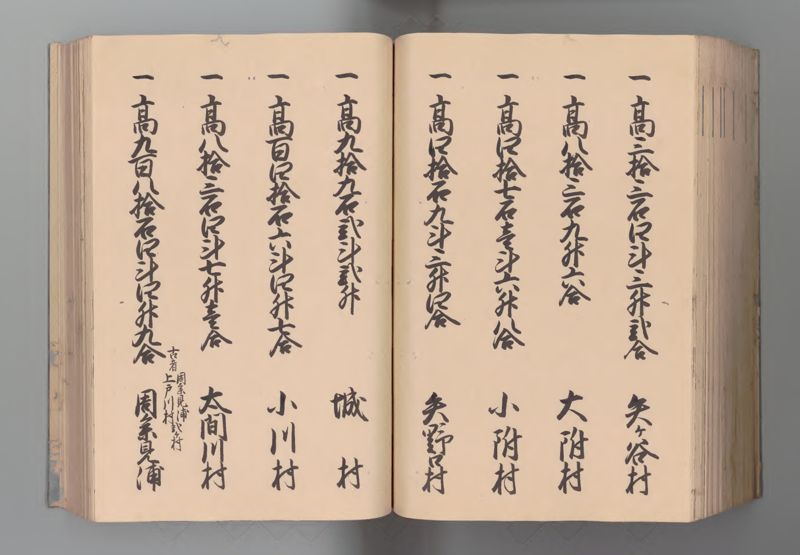 一 高三拾三石四斗三升弐合 矢ヶ谷村
一 高八拾三石九升六合 大附村
一 高四拾七石壱斗六升八合 小附村
一 高四拾石九斗三升四合 矢野口村
一 高九拾九石弐斗弐升 城村
一 高百四拾石六斗四升七合 小川村
一 高八拾三石四斗七升壱合 太間川村
一 高九百八拾石四斗四升九合 周参見浦
古者 周参見浦
上戸川村 弐ヶ村